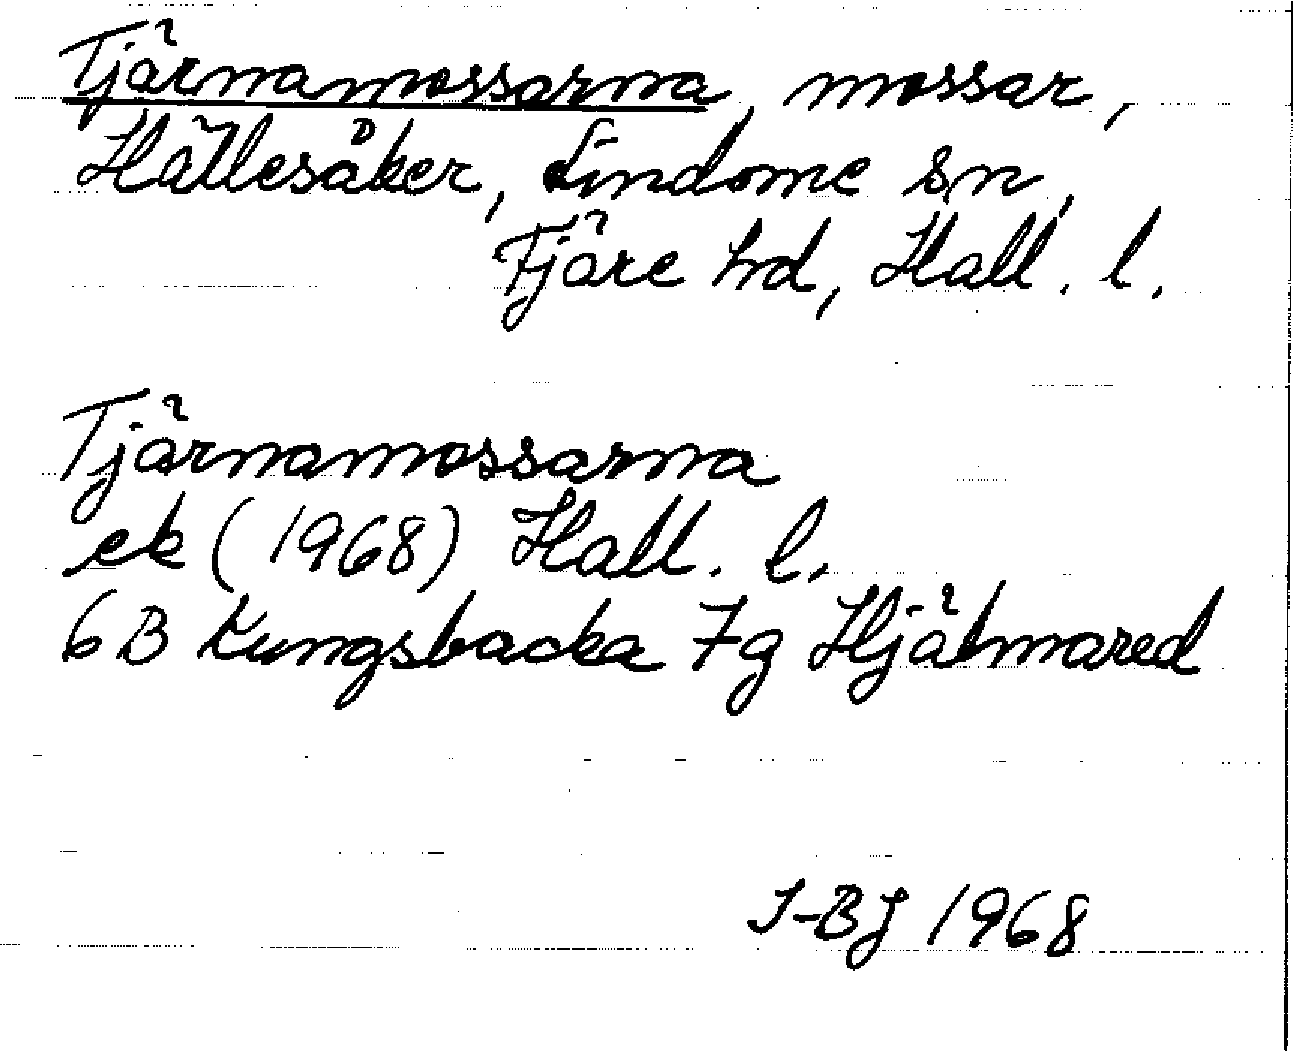 Tjärnamossarna, mossar,
Hällesåker, Lindome sn,
Fjäre hd, Hall. l.
Tjärnamossarna
ek (1968) Hall. l.
6B Kungsbacka 7g Hjälmared
I-BJ 1968